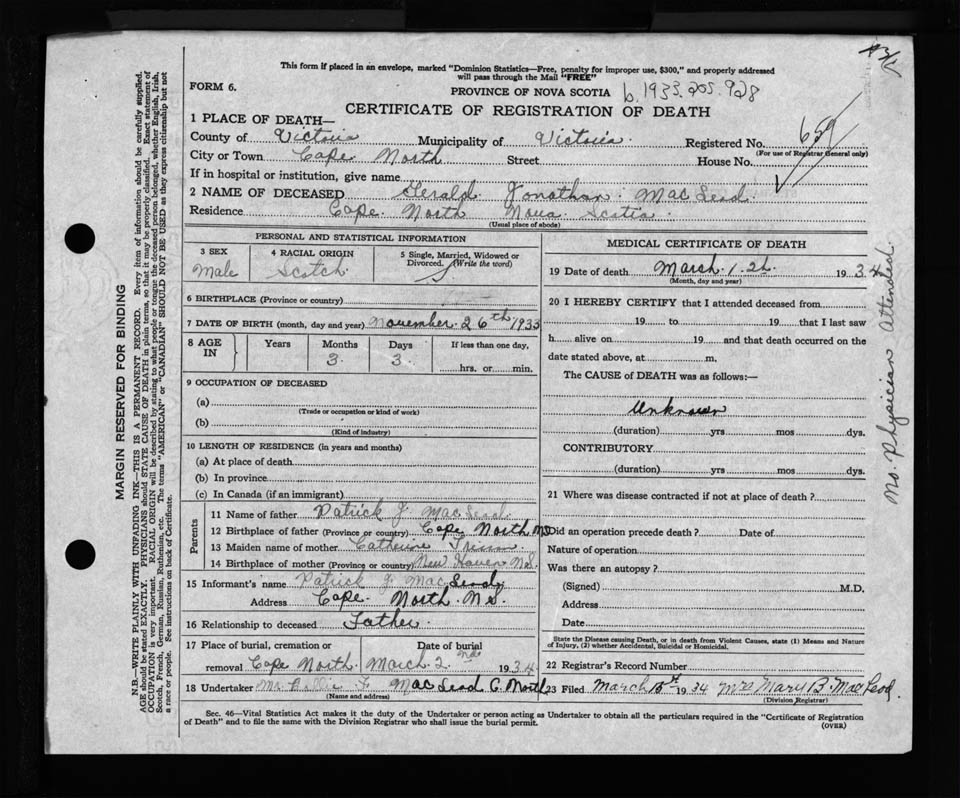 This form if placed in an envelope, marked "Dominion Statistics—Free, penalty for improper use, $300," and properly addressed
will pass through the Mail "FREE"
FORM 6.
PROVINCE OF NOVA SCOTIA b. 1933.205.928
CERTIFICATE OF REGISTRATION OF DEATH
1 PLACE OF DEATH—
County of Victoria Municipality of Victoria Registered No. 659
(For use of Registrar General only)
City or Town Cape North Street House No.
If in hospital or institution, give name
2 NAME OF DECEASED Gerald Jonathan MacLeod
Residence Cape North Nova Scotia
(Usual place of abode)
PERSONAL AND STATISTICAL INFORMATION
3 SEX 4 RACIAL ORIGIN 5 Single, Married, Widowed or
Divorced. (Write the word)
Male Scotch S
6 BIRTHPLACE (Province or country)
7 DATE OF BIRTH (month, day and year) November 26th 1933
8 AGE IN Years Months Days If less than one day,
3 3 hrs. or min.
9 OCCUPATION OF DECEASED
(a)
(Trade or occupation or kind of work)
(b)
(Kind of industry)
10 LENGTH OF RESIDENCE (in years and months)
(a) At place of death
(b) In province
(c) In Canada (if an immigrant)
Parents
11 Name of father Patrick J MacLeod
12 Birthplace of father (Province or country) Cape North N.S.
13 Maiden name of mother Catherine
14 Birthplace of mother (Province or country) New Haven N.S.
15 Informant's name Patrick J MacLeod
Address Cape North N S.
16 Relationship to deceased Father
17 Place of burial, cremation or Date of burial
removal Cape North March 2nd 1934
18 Undertaker F MacLeod C. North
(Name and address)
MEDICAL CERTIFICATE OF DEATH
19 Date of death March 1st 1934
(Month, day and year)
20 I HEREBY CERTIFY that I attended deceased from
19 to 19 that I last saw
h alive on 19 and that death occurred on the
date stated above, at m.
The CAUSE of DEATH was as follows:—
Unknown
(duration) yrs mos dys.
CONTRIBUTORY
(duration) yrs mos dys.
21 Where was disease contracted if not at place of death ?
Did an operation precede death ? Date of
Nature of operation
Was there an autopsy ?
(Signed) M.D.
Address
Date
State the Disease causing Death, or in death from Violent Causes, state (1) Means and Nature
of Injury, (2) whether Accidental, Suicidal or Homicidal.
22 Registrar's Record Number
23 Filed March 1934 Mrs Mary B. MacLeod
(Division Registrar)
Sec. 46—Vital Statistics Act makes it the duty of the Undertaker or person acting as Undertaker to obtain all the particulars required in the "Certificate of Registration
of Death" and to file the same with the Division Registrar who shall issue the burial permit.
(OVER)
No. Physician Attended
MARGIN RESERVED FOR BINDING
N.B.—WRITE PLAINLY WITH UNFADING INK—THIS IS A PERMANENT RECORD. Every item of information should be carefully supplied.
AGE should be stated EXACTLY. PHYSICIANS should STATE CAUSE OF DEATH in plain terms, so that it may be properly classified. Exact statement of
OCCUPATION is very important. RACIAL ORIGIN will be described by stating to what people or tongue the deceased person belonged, whether English, Irish,
Scotch, French, German, Russian, Ruthenian, etc. The terms "AMERICAN" or "CANADIAN" SHOULD NOT BE USED as they express citizenship but not
a race or people. See instructions on back of Certificate.